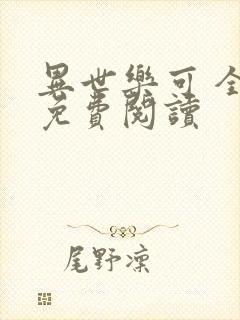 異世樂可 全
免費閱讀
尾野凜